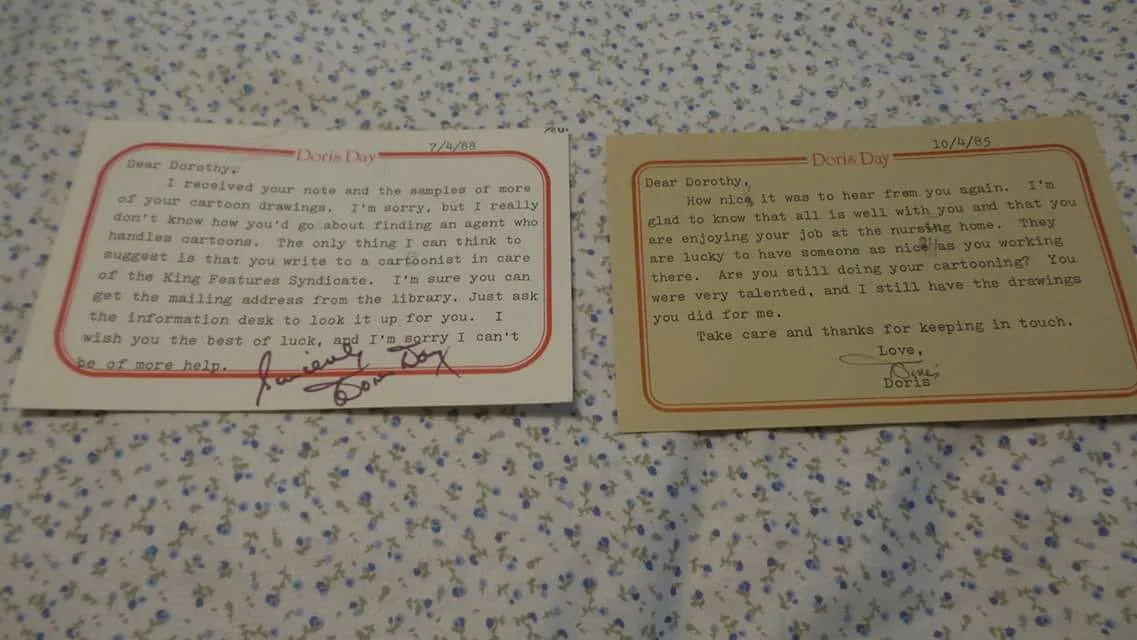 Doris Day
7/4/88
Dear Dorothy,
I received your note and the samples of more
of your cartoon drawings. I'm sorry, but I really
don't know how you'd go about finding an agent who
handles cartoons. The only thing I can think to
suggest is that you write to a cartoonist in care
of the King Features Syndicate. I'm sure you can
get the mailing address from the library. Just ask
the information desk to look it up for you. I
wish you the best of luck, and I'm sorry I can't
be of more help.
Sincerely
Doris Day
Doris Day
10/4/85
Dear Dorothy,
How nice it was to hear from you again. I'm
glad to know that all is well with you and that you
are enjoying your job at the nursing home. They
are lucky to have someone as nice as you working
there. Are you still doing your cartooning? You
were very talented, and I still have the drawings
you did for me.
Take care and thanks for keeping in touch.
Love,
Doris
Doris